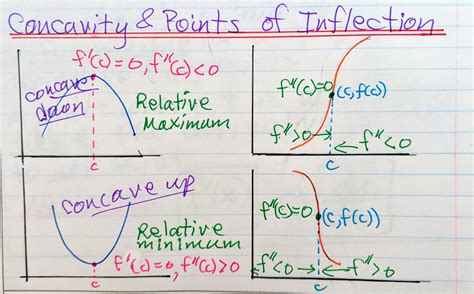 Concavity & Points of Inflection
f'(c)=0, f''(c)<0
concave down
Relative Maximum
c
f''(c)=0
(c, f(c))
f''>0
f''<0
c
concave up
Relative minimum
f'(c)=0, f''(c)>0
c
f''(c)=0
(c, f(c))
f''<0
f''>0
c